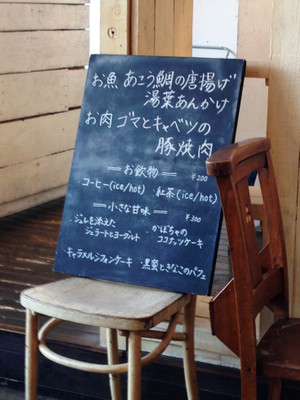 お魚 あこう鯛の唐揚げ
湯葉あんかけ
お肉 ゴマとキャベツの
豚焼肉
＝お飲物＝ ¥200
コーヒー(ice/hot) 紅茶(ice/hot)
＝小さな甘味＝ ¥300
ジュレを添えた
ジェラートとヨーグルト
かぼちゃの
ココナッツケーキ
キャラメルシフォンケーキ ・黒蜜ときなこのパフェ